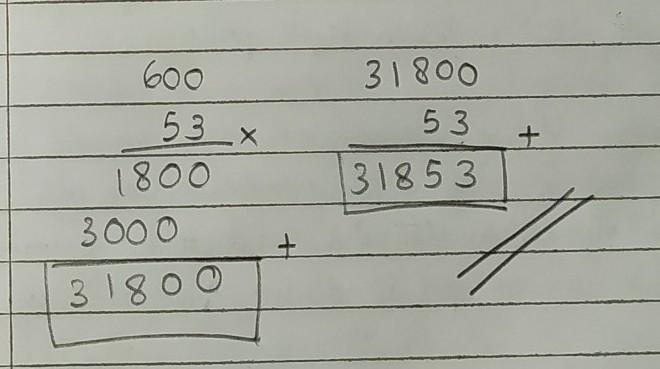 600
53 ×
1800
3000 +
31800
31800
53 +
31853